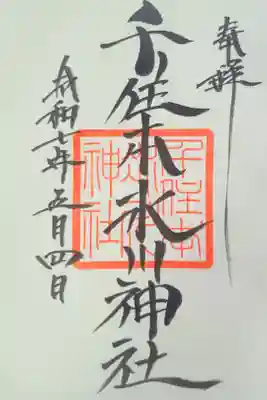 奉拝
千住本氷川神社
令和七年五月四日
千住本氷川神社